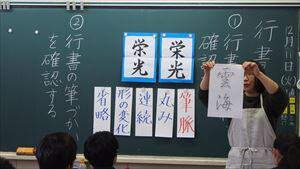 12月11日(火)
①行書
確認
栄光
栄光
筆脈
丸み
連続
形の変化
省略
雲海
②行書の筆づか
を確認する